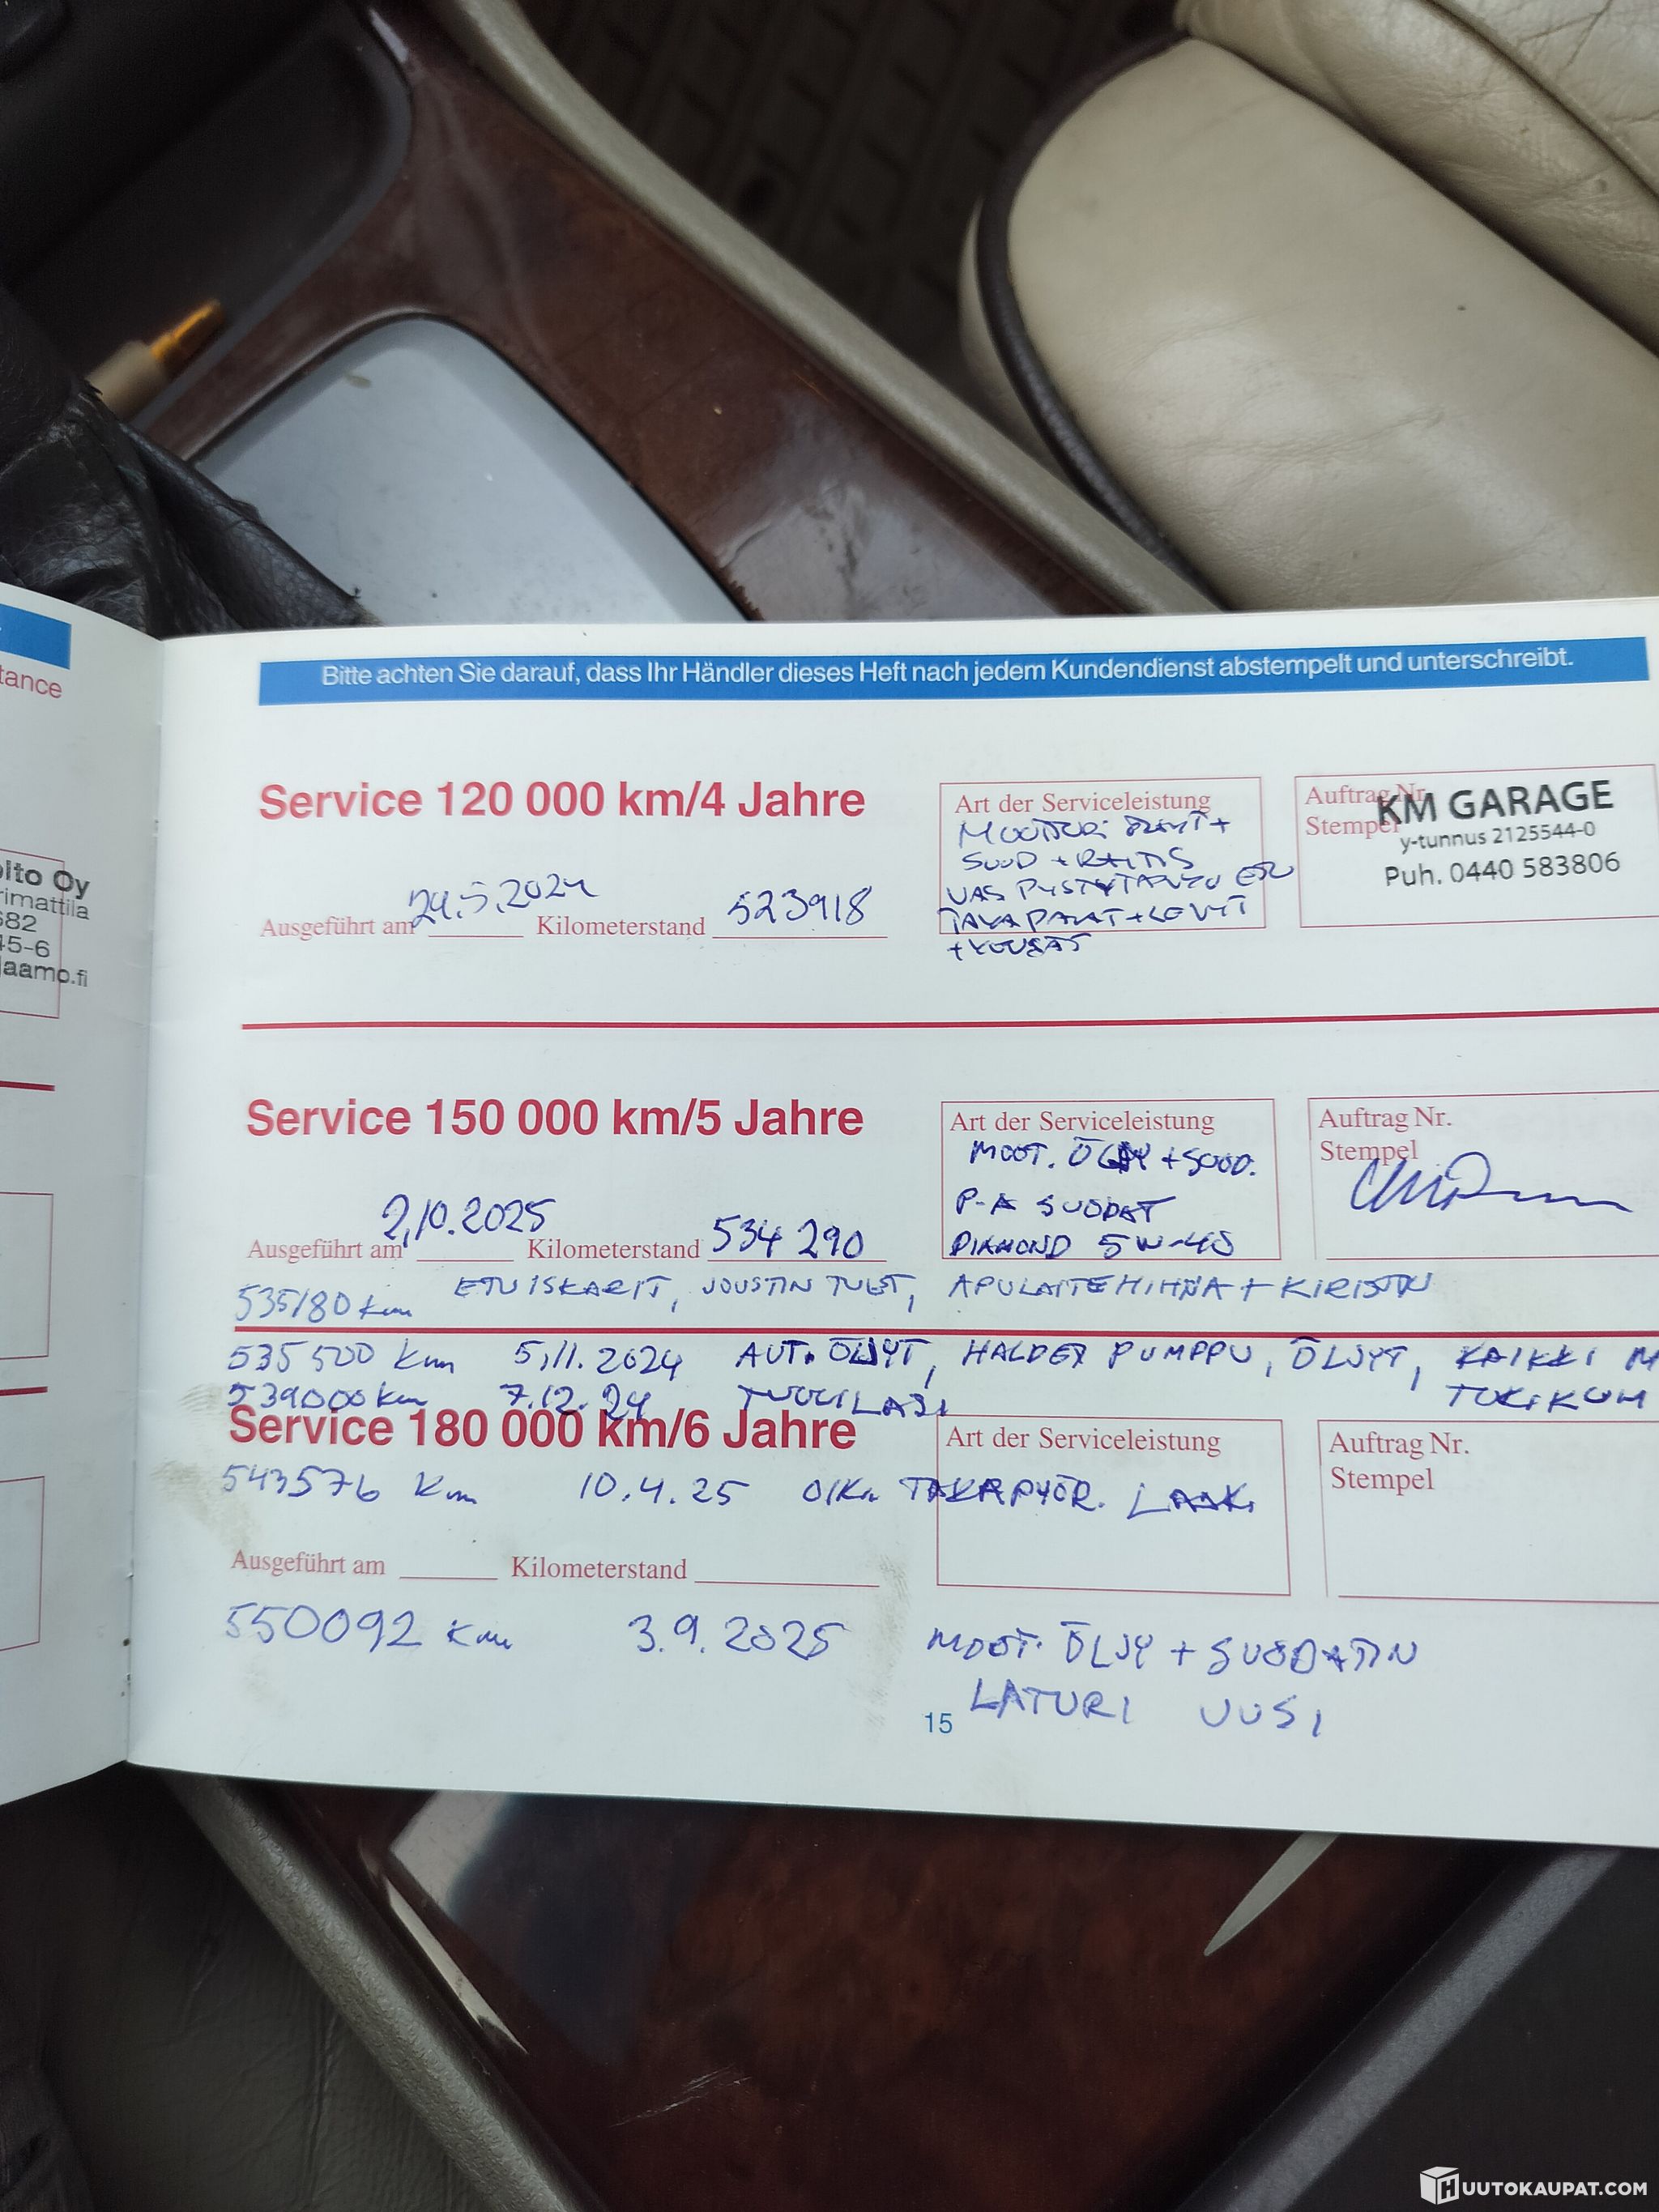 tance
Bitte achten Sie darauf, dass Ihr Händler dieses Heft nach jedem Kundendienst abstempelt und unterschreibt.
Service 120 000 km/4 Jahre
Ausgeführt am 24.5.2024 Kilometerstand 523918
Art der Serviceleistung
+
SUOD + RAITIS
VAS PYSTYTANKO ETU
TAKAPALAT + LEVYT
+
Auftrag Nr.
Stempel
KM GARAGE
y-tunnus 2125544-0
Puh. 0440 583806
olto Oy
rimattila
682
45-6
laamo.fi
Service 150 000 km/5 Jahre
Ausgeführt am 2,10.2025 Kilometerstand 534 290
Art der Serviceleistung
MOOT. ÖLJY + SUOD.
P-A SUODAT
DIAMOND 5W-40
Auftrag Nr.
Stempel
535180 km ETU ISKARIT, JOUSTIN TUET, APULAITEHIHNA + KIRISTIN
535 500 km 5,11.2024 AUT. ÖLJYT, HALDEX PUMPPU, ÖLJYT, KAIKKI M
539000 km 7.12.24 TUULILASI
Service 180 000 km/6 Jahre
Art der Serviceleistung
Auftrag Nr.
Stempel
543576 km 10.4.25 OIK. TAKAPYÖR. LAAK.
Ausgeführt am Kilometerstand
550092 km 3.9.2025 MOOT. ÖLJY + SUODATIN
LATURI UUSI
15
HUUTOKAUPAT.COM